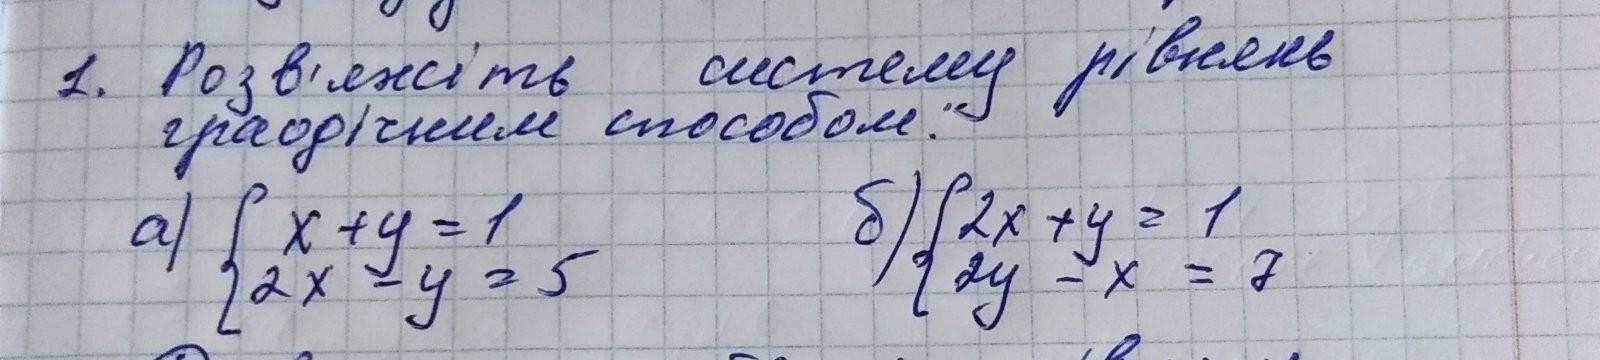 1. Розв'яжіть систему рівнянь
графічним способом:
а) { x + y = 1
2x - y = 5
б) { 2x + y = 1
2y - x = 7